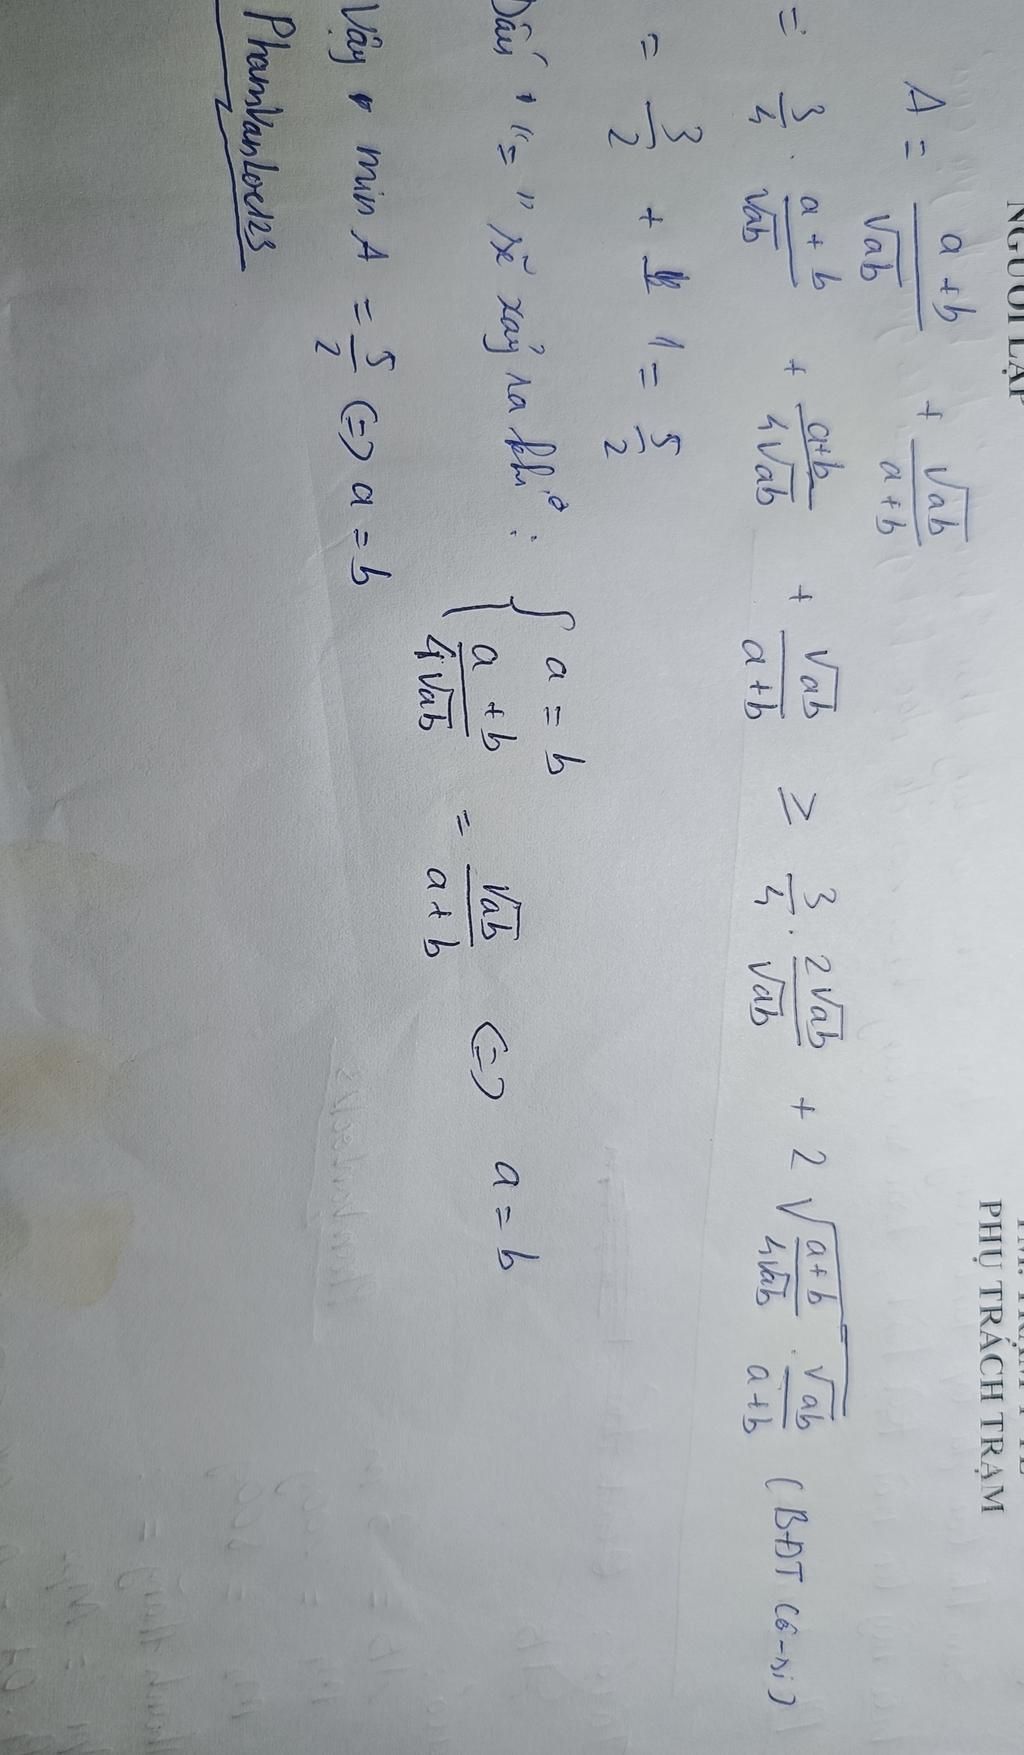 NGƯỜI LẬP
PHỤ TRÁCH TRẠM
A = \frac{a+b}{\sqrt{ab}} + \frac{\sqrt{ab}}{a+b}
= \frac{3}{4} . \frac{a+b}{\sqrt{ab}} + \frac{a+b}{4\sqrt{ab}} + \frac{\sqrt{ab}}{a+b} ≥ \frac{3}{4} . \frac{2\sqrt{ab}}{\sqrt{ab}} + 2\sqrt{\frac{a+b}{4\sqrt{ab}} . \frac{\sqrt{ab}}{a+b}} (BĐT Cô-si)
= \frac{3}{2} + 1 = \frac{5}{2}
Dấu "=" sẽ xảy ra khi : { a = b
\frac{a+b}{4\sqrt{ab}} = \frac{\sqrt{ab}}{a+b} (=) a = b
Vậy min A = \frac{5}{2} (=) a = b
PhamVanLoc123